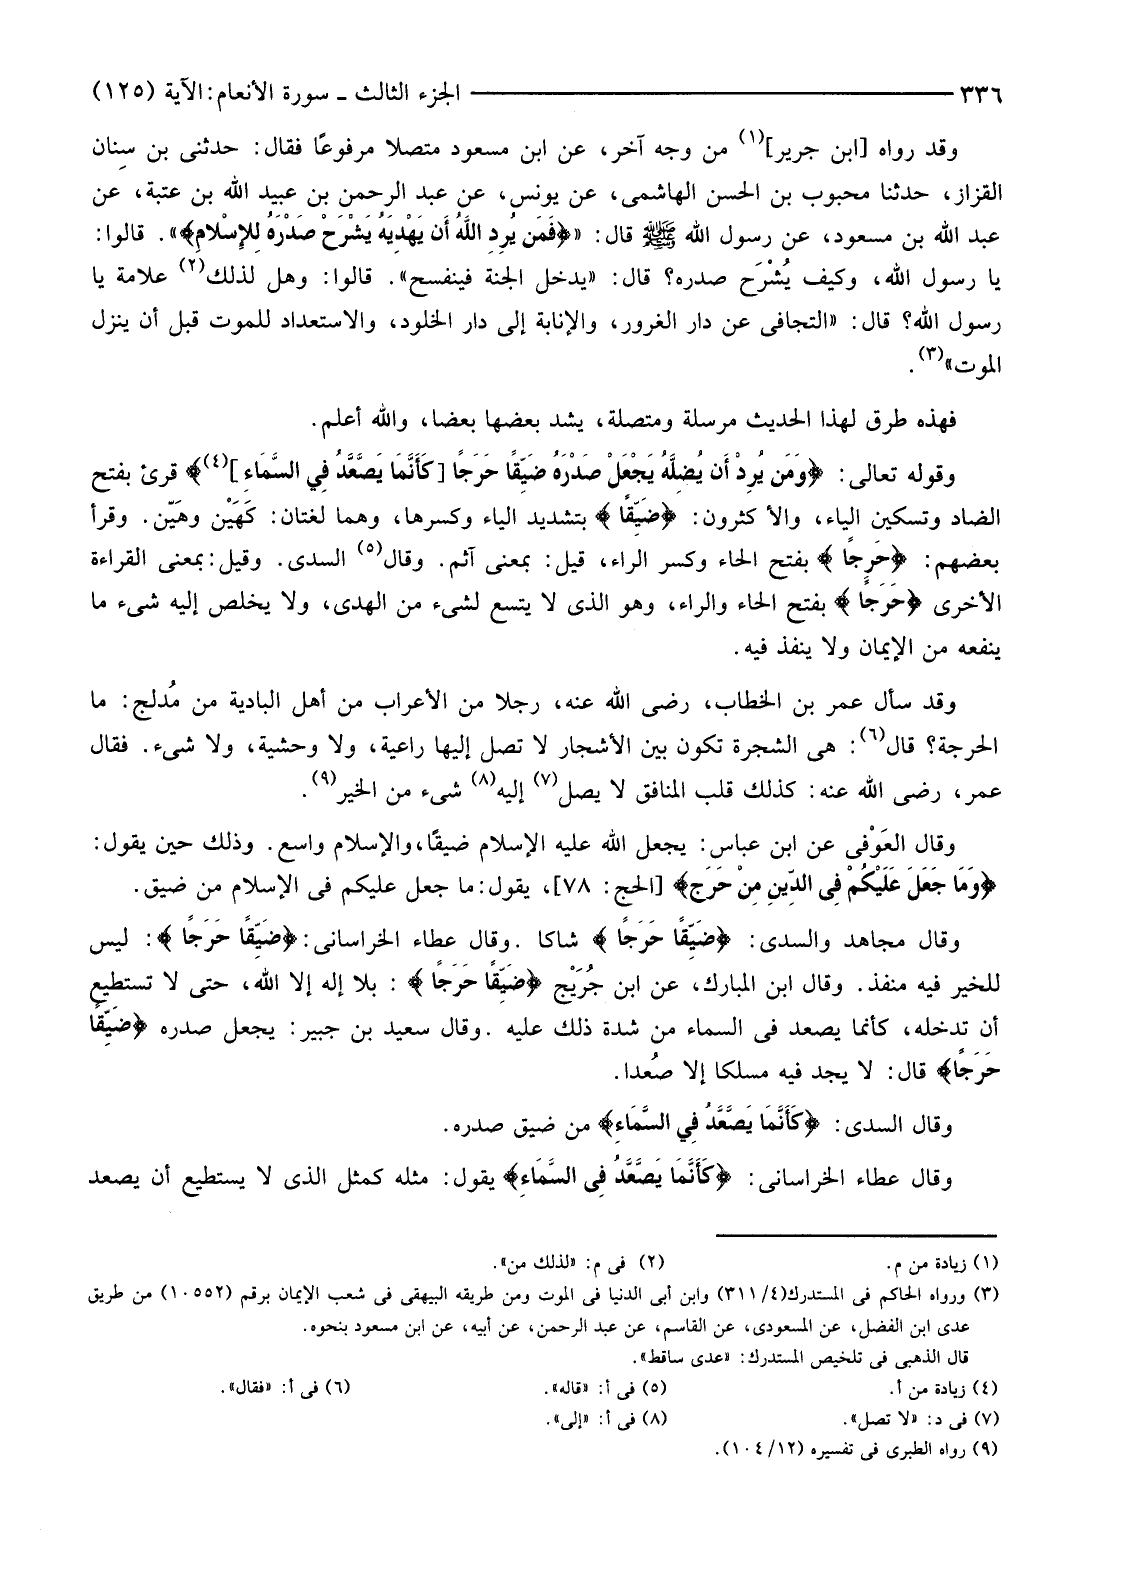 ٣٣٦ ــــــــــــــــــــــــــــــ الجزء الثالث ـ سورة الأنعام: الآية (١٢٥)
وقد رواه [ابن جرير](١) من وجه آخر، عن ابن مسعود متصلا مرفوعًا فقال: حدثنى بن سِنان
القزاز، حدثنا محبوب بن الحسن الهاشمى، عن يونس، عن عبد الرحمن بن عبيد الله بن عتبة، عن
عبد الله بن مسعود، عن رسول الله ﷺ قال: «﴿فَمَن يُرِدِ اللَّهُ أَن يَهْدِيَهُ يَشْرَحْ صَدْرَهُ لِلإِسْلامِ﴾». قالوا:
يا رسول الله، وكيف يُشْرَح صدره؟ قال: «يدخل الجنة فينفسح». قالوا: وهل لذلك(٢) علامة يا
رسول الله؟ قال: «التجافى عن دار الغرور، والإنابة إلى دار الخلود، والاستعداد للموت قبل أن ينزل
الموت»(٣).
فهذه طرق لهذا الحديث مرسلة ومتصلة، يشد بعضها بعضا، والله أعلم.
وقوله تعالى: ﴿وَمَن يُرِدْ أَن يُضِلَّهُ يَجْعَلْ صَدْرَهُ ضَيِّقًا حَرَجًا [كَأَنَّمَا يَصَّعَّدُ فِي السَّمَاءِ](٤)﴾ قرئ بفتح
الضاد وتسكين الياء، والأكثرون: ﴿ضَيِّقًا﴾ بتشديد الياء وكسرها، وهما لغتان: كَهَيْن وهَيّن. وقرأ
بعضهم: ﴿حَرِجًا﴾ بفتح الحاء وكسر الراء، قيل: بمعنى آثم. وقال(٥) السدى. وقيل: بمعنى القراءة
الأخرى ﴿حَرَجًا﴾ بفتح الحاء والراء، وهو الذى لا يتسع لشىء من الهدى، ولا يخلص إليه شىء ما
ينفعه من الإيمان ولا ينفذ فيه.
وقد سأل عمر بن الخطاب، رضى الله عنه، رجلا من الأعراب من أهل البادية من مُدلج: ما
الحرجة؟ قال(٦): هى الشجرة تكون بين الأشجار لا تصل إليها راعية، ولا وحشية، ولا شىء. فقال
عمر، رضى الله عنه: كذلك قلب المنافق لا يصل(٧) إليه(٨) شىء من الخير(٩).
وقال العَوْفى عن ابن عباس: يجعل الله عليه الإسلام ضيقًا، والإسلام واسع. وذلك حين يقول:
﴿وَمَا جَعَلَ عَلَيْكُمْ فِى الدِّينِ مِنْ حَرَجٍ﴾ [الحج: ٧٨]، يقول: ما جعل عليكم فى الإسلام من ضيق.
وقال مجاهد والسدى: ﴿ضَيِّقًا حَرَجًا﴾ شاكا. وقال عطاء الخراسانى: ﴿ضَيِّقًا حَرَجًا﴾: ليس
للخير فيه منفذ. وقال ابن المبارك، عن ابن جُرَيْج ﴿ضَيِّقًا حَرَجًا﴾: بلا إله إلا الله، حتى لا تستطيع
أن تدخله، كأنما يصعد فى السماء من شدة ذلك عليه. وقال سعيد بن جبير: يجعل صدره ﴿ضَيِّقًا
حَرَجًا﴾ قال: لا يجد فيه مسلكا إلا صُعدا.
وقال السدى: ﴿كَأَنَّمَا يَصَّعَّدُ فِي السَّمَاءِ﴾ من ضيق صدره.
وقال عطاء الخراسانى: ﴿كَأَنَّمَا يَصَّعَّدُ فِى السَّمَاءِ﴾ يقول: مثله كمثل الذى لا يستطيع أن يصعد
(١) زيادة من م. (٢) فى م: «لذلك من».
(٣) ورواه الحاكم فى المستدرك(٤/ ٣١١) وابن أبى الدنيا فى الموت ومن طريقه البيهقى فى شعب الإيمان برقم (١٠٥٥٢) من طريق
عدى ابن الفضل، عن المسعودى، عن القاسم، عن عبد الرحمن، عن أبيه، عن ابن مسعود بنحوه.
قال الذهبى فى تلخيص المستدرك: «عدى ساقط».
(٤) زيادة من أ. (٥) فى أ: «قاله». (٦) فى أ: «فقال».
(٧) فى د: «لا تصل». (٨) فى أ: «إلى».
(٩) رواه الطبرى فى تفسيره (١٢/ ١٠٤).